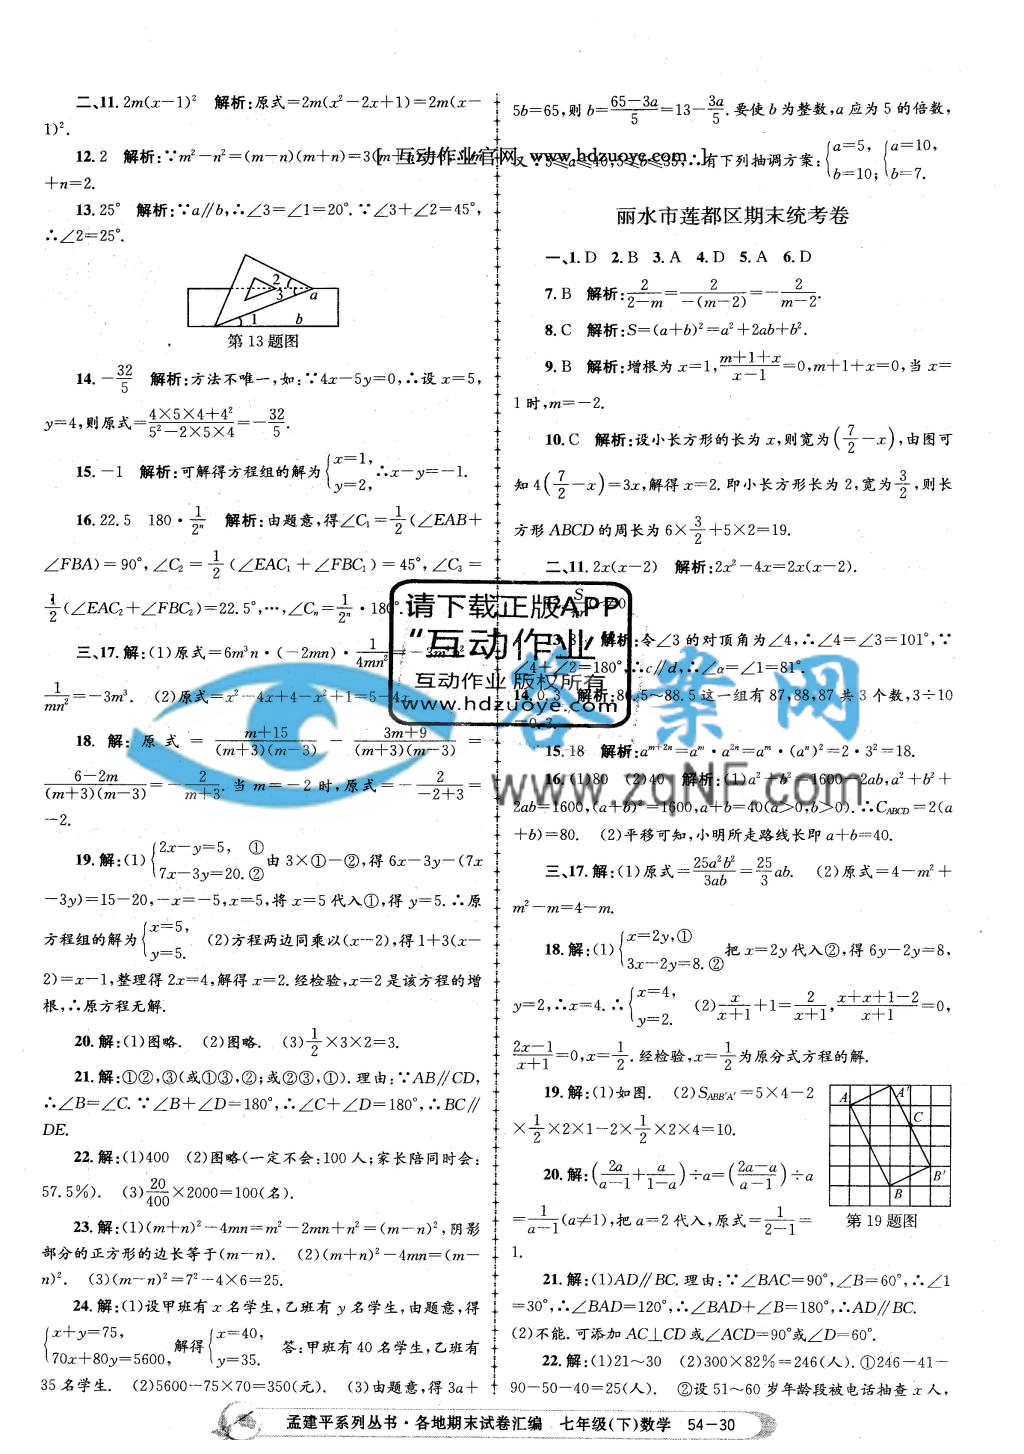 二、11. 2m(x-1)² 解析:原式=2m(x²-2x+1)=2m(x-
1)².
12. 2 解析:∵m²-n²=(m-n)(m+n)=3(m
+n=2.
[ 互动作业官网 www.hdzuoye.com ]
13. 25° 解析:∵a∥b,∴∠3=∠1=20°.∵∠3+∠2=45°,
∴∠2=25°.
2
3 a
1 b
第13题图
14. -32/5 解析:方法不唯一,如:∵4x-5y=0,∴设x=5,
y=4,则原式=(4×5×4+4²)/(5²-2×5×4)=-32/5.
15. -1 解析:可解得方程组的解为{x=1, y=2, ∴x-y=-1.
16. 22.5 180·1/2ⁿ 解析:由题意,得∠C₁=1/2(∠EAB+
∠FBA)=90°,∠C₂=1/2(∠EAC₁+∠FBC₁)=45°,∠C₃=
1/2(∠EAC₂+∠FBC₂)=22.5°,…,∠Cₙ=1/2ⁿ·180°.
三、17. 解:(1)原式=6m³n·(-2mn)·1/4mn²=-3m⁴n²·
1/mn²=-3m³. (2)原式=x²-4x+4-x²+1=5-4x.
18. 解:原式=(m+15)/((m+3)(m-3))-(3m+9)/((m+3)(m-3))=
(6-2m)/((m+3)(m-3))=-2/(m+3).当m=-2时,原式=-2/(-2+3)=
-2.
19. 解:(1){2x-y=5, ① 7x-3y=20. ② 由3×①-②,得6x-3y-(7x
-3y)=15-20,-x=-5,x=5,将x=5代入①,得y=5.∴原
方程组的解为{x=5, y=5. (2)方程两边同乘以(x-2),得1+3(x-
2)=x-1,整理得2x=4,解得x=2.经检验,x=2是该方程的增
根,∴原方程无解.
20. 解:(1)图略. (2)图略. (3)1/2×3×2=3.
21. 解:①②,③(或①③,②;或②③,①).理由:∵AB∥CD,
∴∠B=∠C.∵∠B+∠D=180°,∴∠C+∠D=180°,∴BC∥
DE.
22. 解:(1)400 (2)图略(一定不会:100人;家长陪同时会:
57.5%). (3)20/400×2000=100(名).
23. 解:(1)(m+n)²-4mn=m²-2mn+n²=(m-n)²,阴影
部分的正方形的边长等于(m-n). (2)(m+n)²-4mn=(m-
n)². (3)(m-n)²=7²-4×6=25.
24. 解:(1)设甲班有x名学生,乙班有y名学生,由题意,得
{x+y=75, 70x+80y=5600, 解得{x=40, y=35. 答:甲班有40名学生,乙班有
35名学生. (2)5600-75×70=350(元). (3)由题意,得3a+
5b=65,则b=(65-3a)/5=13-3a/5.要使b为整数,a应为5的倍数,
∴有下列抽调方案:{a=5, b=10; {a=10, b=7.
丽水市莲都区期末统考卷
一、1. D 2. B 3. A 4. D 5. A 6. D
7. B 解析:2/(2-m)=2/(-(m-2))=-2/(m-2).
8. C 解析:S=(a+b)²=a²+2ab+b².
9. B 解析:增根为x=1,(m+1+x)/(x-1)=0,m+1+x=0,当x=
1时,m=-2.
10. C 解析:设小长方形的长为x,则宽为(7/2-x),由图可
知4(7/2-x)=3x,解得x=2.即小长方形长为2,宽为3/2,则长
方形ABCD的周长为6×3/2+5×2=19.
二、11. 2x(x-2) 解析:2x²-4x=2x(x-2).
解析:令∠3的对顶角为∠4,∴∠4=∠3=101°,∵
∠4+∠2=180°,∴c∥d,∴∠α=∠1=81°.
14. 0.3 解析:86.5~88.5这一组有87,88,87共3个数,3÷10
=0.3.
15. 18 解析:aᵐ⁺²ⁿ=aᵐ·a²ⁿ=aᵐ·(aⁿ)²=2·3²=18.
16. (1)80 (2)40 解析:(1)a²+b²=1600-2ab,a²+b²+
2ab=1600,(a+b)²=1600,a+b=40(a>0,b>0).∴C_ABCD=2(a
+b)=80. (2)平移可知,小明所走路线长即a+b=40.
三、17. 解:(1)原式=25a²b²/3ab=25/3ab. (2)原式=4-m²+
m²-m=4-m.
18. 解:(1){x=2y, ① 3x-2y=8. ② 把x=2y代入②,得6y-2y=8,
y=2,∴x=4.∴{x=4, y=2. (2)x/(x+1)+1=2/(x+1),(x+x+1-2)/(x+1)=0,
(2x-1)/(x+1)=0,x=1/2.经检验,x=1/2为原分式方程的解.
19. 解:(1)如图. (2)S_ABB′A′=5×4-2
×1/2×2×1-2×1/2×2×4=10.
A A′ C B′ B
第19题图
20. 解:(2a/(a-1)+a/(1-a))÷a=((2a-a)/(a-1))÷a
=1/(a-1)(a≠1),把a=2代入,原式=1/(2-1)=
1.
21. 解:(1)AD∥BC.理由:∵∠BAC=90°,∠B=60°,∴∠1
=30°,∴∠BAD=120°,∴∠BAD+∠B=180°,∴AD∥BC.
(2)不能.可添加AC⊥CD或∠ACD=90°或∠D=60°.
22. 解:(1)21~30 (2)300×82%=246(人).①246-41-
90-50-40=25(人). ②设51~60岁年龄段被电话抽查x人,
请下载正版APP
“互动作业
互动作业 版权所有
www.hdzuoye.com
答案网
www.zqNF.com
孟建平系列丛书·各地期末试卷汇编 七年级(下)数学 54-30